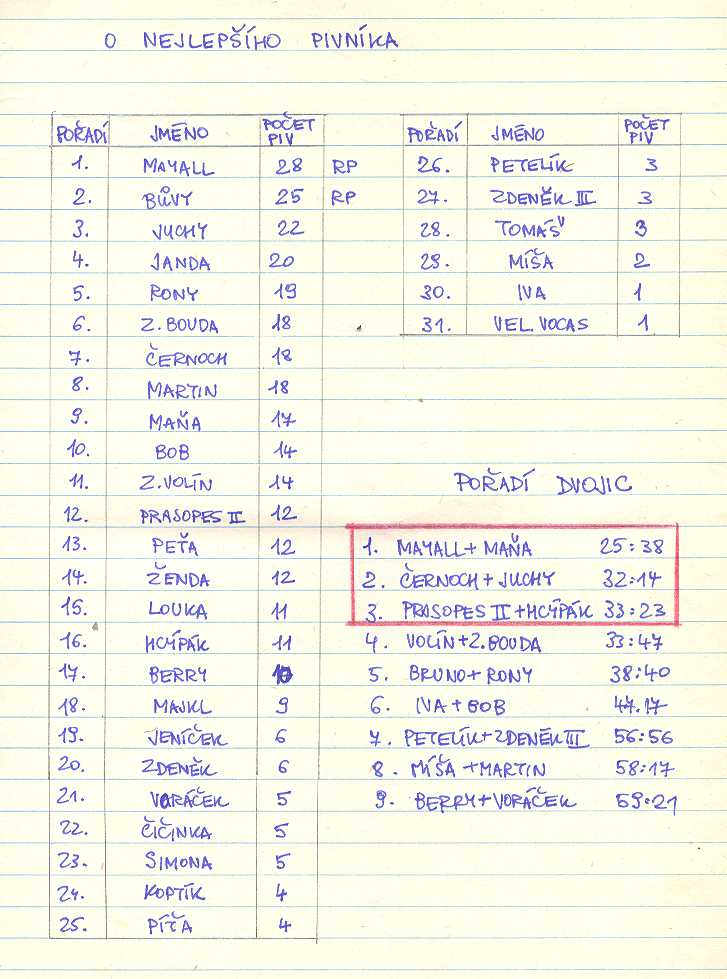 O NEJLEPŠÍHO PIVNÍKA
POŘADÍ JMÉNO POČET PIV
1. MAYALL 28 RP
2. BŮVY 25 RP
3. JUCHY 22
4. JANDA 20
5. RONY 19
6. Z. BOUDA 18
7. ČERNOCH 18
8. MARTIN 18
9. MAŇA 17
10. BOB 14
11. Z. VOLÍN 14
12. PRASOPES II 12
13. PEŤA 12
14. ŽENDA 12
15. LOUKA 11
16. HCÍPÁK 11
17. BERRY 10
18. MAJKL 9
19. JENÍČEK 6
20. ZDENĚK 6
21. VORÁČEK 5
22. ČIČINKA 5
23. SIMONA 5
24. KOPTÍK 4
25. PÍŤA 4
POŘADÍ JMÉNO POČET PIV
26. PETELÍK 3
27. ZDENĚK III 3
28. TOMÁŠ 3
29. MÍŠA 2
30. IVA 1
31. VEL. VOCAS 1
POŘADÍ DVOJIC
1. MAYALL + MAŇA 25:38
2. ČERNOCH + JUCHY 32:14
3. PRASOPES II + HCÍPÁK 33:23
4. VOLÍN + Z. BOUDA 33:47
5. BRUNO + RONY 38:40
6. IVA + BOB 47.17
7. PETELÍK + ZDENĚK III 56:56
8. MÍŠA + MARTIN 58:17
9. BERRY + VORÁČEK 59:21